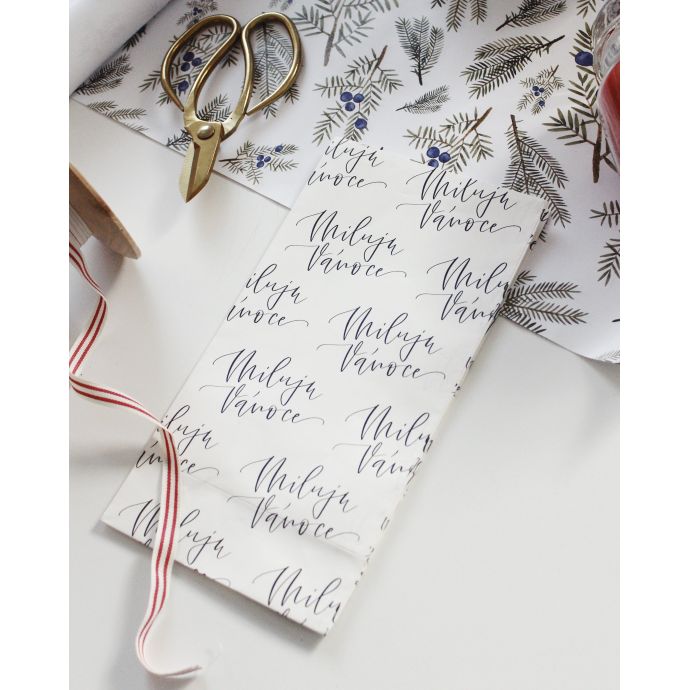 iluju
Miluju
ánoce
Vánoce
Miluju
Vánoce
Miluju
Vánoce
iluju
ánoce
Miluju
Vánoce
Miluju
Vánoce
Milu
Váno
iluju
ánoce
Miluju
Vánoce
Miluju
Milu